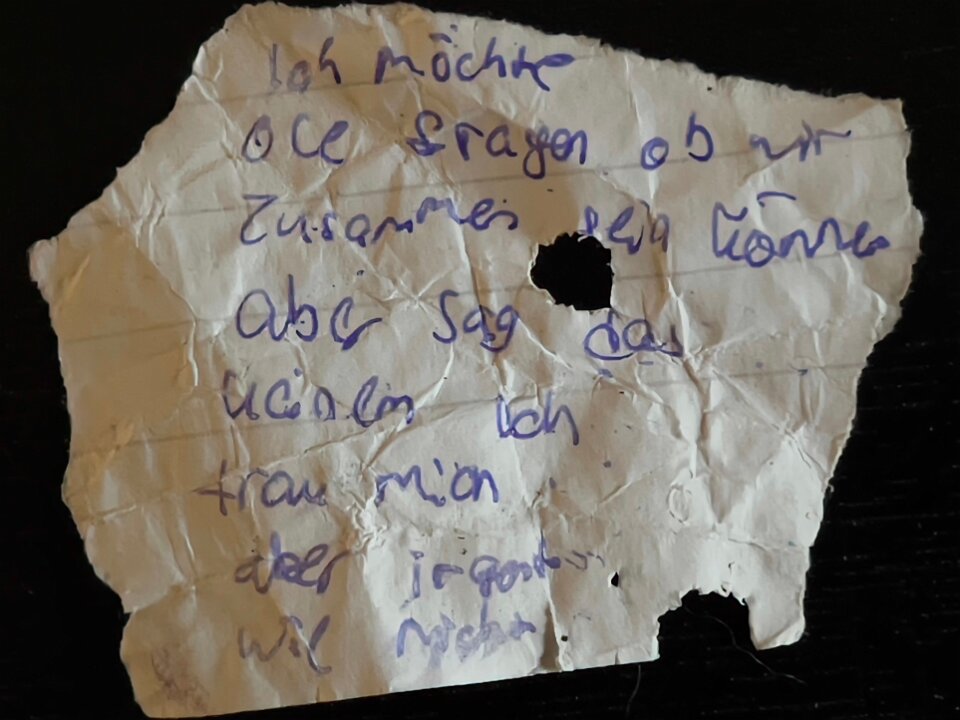 Ich möchte
Ole fragen ob wir
Zusammen sein können
aber sag das
keinem Ich
trau mich
aber irgend
wie nicht